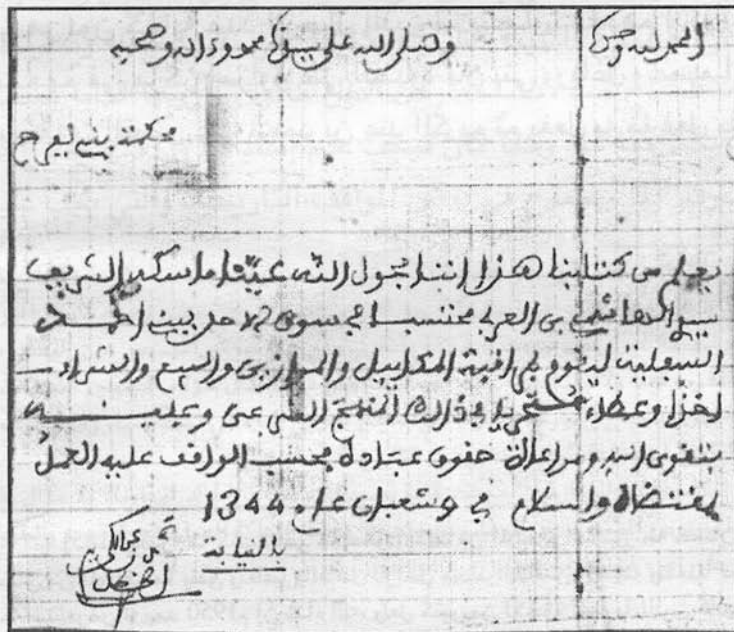 الحمد لله وحده وصلى الله على سيدنا محمد وءاله وصحبه
محكمة بني
يعلم من كتابنا هذا اننا بحول الله عيننا ماسكه الشريف
سيدي الهاشمي بن العربي محتسبا في سوق الاحد ببيت احمد
السفلية ليقوم بمراقبة المكاييل والموازين والبيع والشراء
اخذا وعطاء في ذالك المنهج الشرعي وعليه
بتقوى الله ومراعاة حقوق عباده فحسب الواقف عليه العمل
بمقتضاه والسلام في شعبان عام 1344
بالنيابة